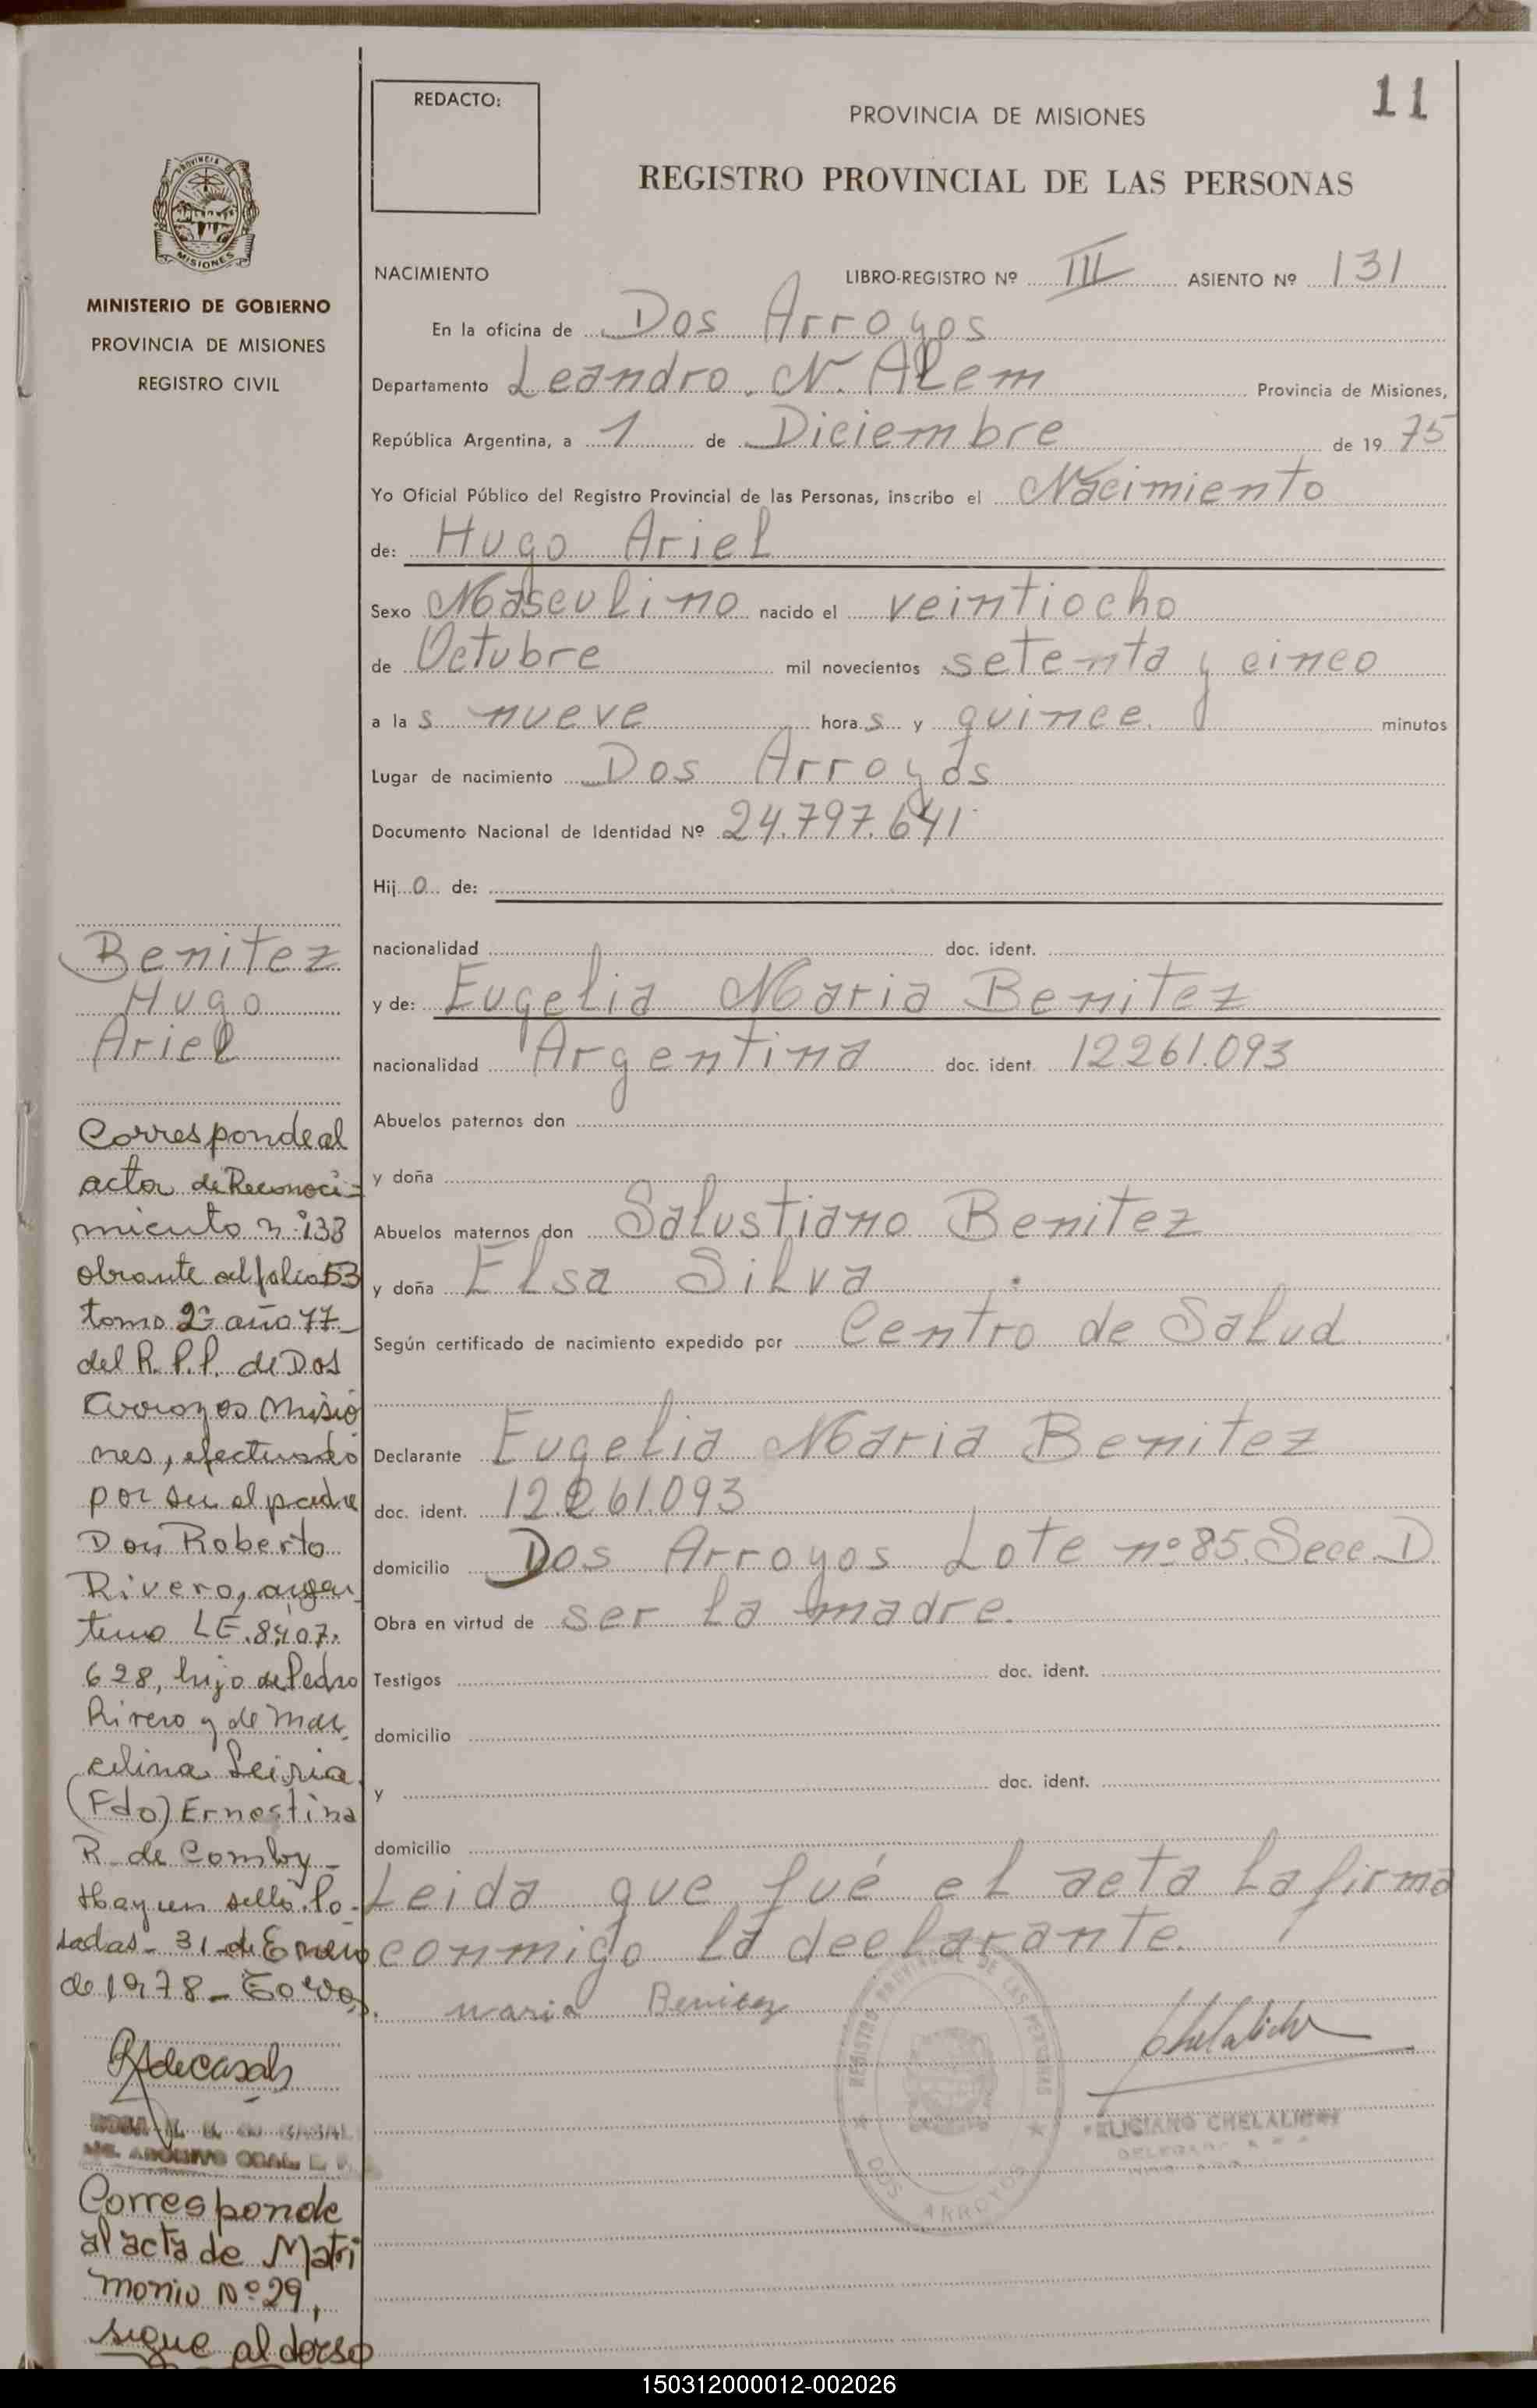 11
REDACTO:
PROVINCIA DE MISIONES
REGISTRO PROVINCIAL DE LAS PERSONAS
PROVINCIA
MISIONES
MINISTERIO DE GOBIERNO
PROVINCIA DE MISIONES
REGISTRO CIVIL
NACIMIENTO LIBRO-REGISTRO Nº III ASIENTO Nº 131
En la oficina de Dos Arroyos
Departamento Leandro N. Alem Provincia de Misiones,
República Argentina, a 1 de Diciembre de 1975
Yo Oficial Público del Registro Provincial de las Personas, inscribo el Nacimiento
de: Hugo Ariel
Sexo Masculino nacido el veintiocho
de Octubre mil novecientos setenta y cinco
a las nueve horas y quince minutos
Lugar de nacimiento Dos Arroyos
Documento Nacional de Identidad Nº 24.797.641
Hijo de:
nacionalidad doc. ident.
y de: Eugelia Maria Benitez
nacionalidad Argentina doc. ident. 12.261.093
Abuelos paternos don
y doña
Abuelos maternos don Salustiano Benitez
y doña Elsa Silva
Según certificado de nacimiento expedido por Centro de Salud
Declarante Eugelia Maria Benitez
doc. ident. 12.261.093
domicilio Dos Arroyos Lote nº 85. Secc. D
Obra en virtud de ser la madre.
Testigos doc. ident.
domicilio
y doc. ident.
domicilio
Leida que fué el acta la firma
conmigo la declarante.
maria Benitez
REGISTRO PROVINCIAL DE LAS PERSONAS
DOS ARROYOS
FELICIANO CHELALICHE
Benitez
Hugo
Ariel
Corresponde al
acta de Reconoci-
miento nº 133
obrante al folio 53
tomo 2º año 77-
del R.P.P. de Dos
Arroyos Misio
nes, efectuado
por su el padre
Don Roberto
Rivero, argen
tino LE. 8.407.
628, hijo de Pedro
Rivero y de Mar
celina
(Fdo) Ernestina
R. de
Hay un sello. Po-
sadas- 31 de Enero
de 1978-
Corresponde
al acta de Matri
monio Nº 29,
sigue al dorso
150312000012-002026